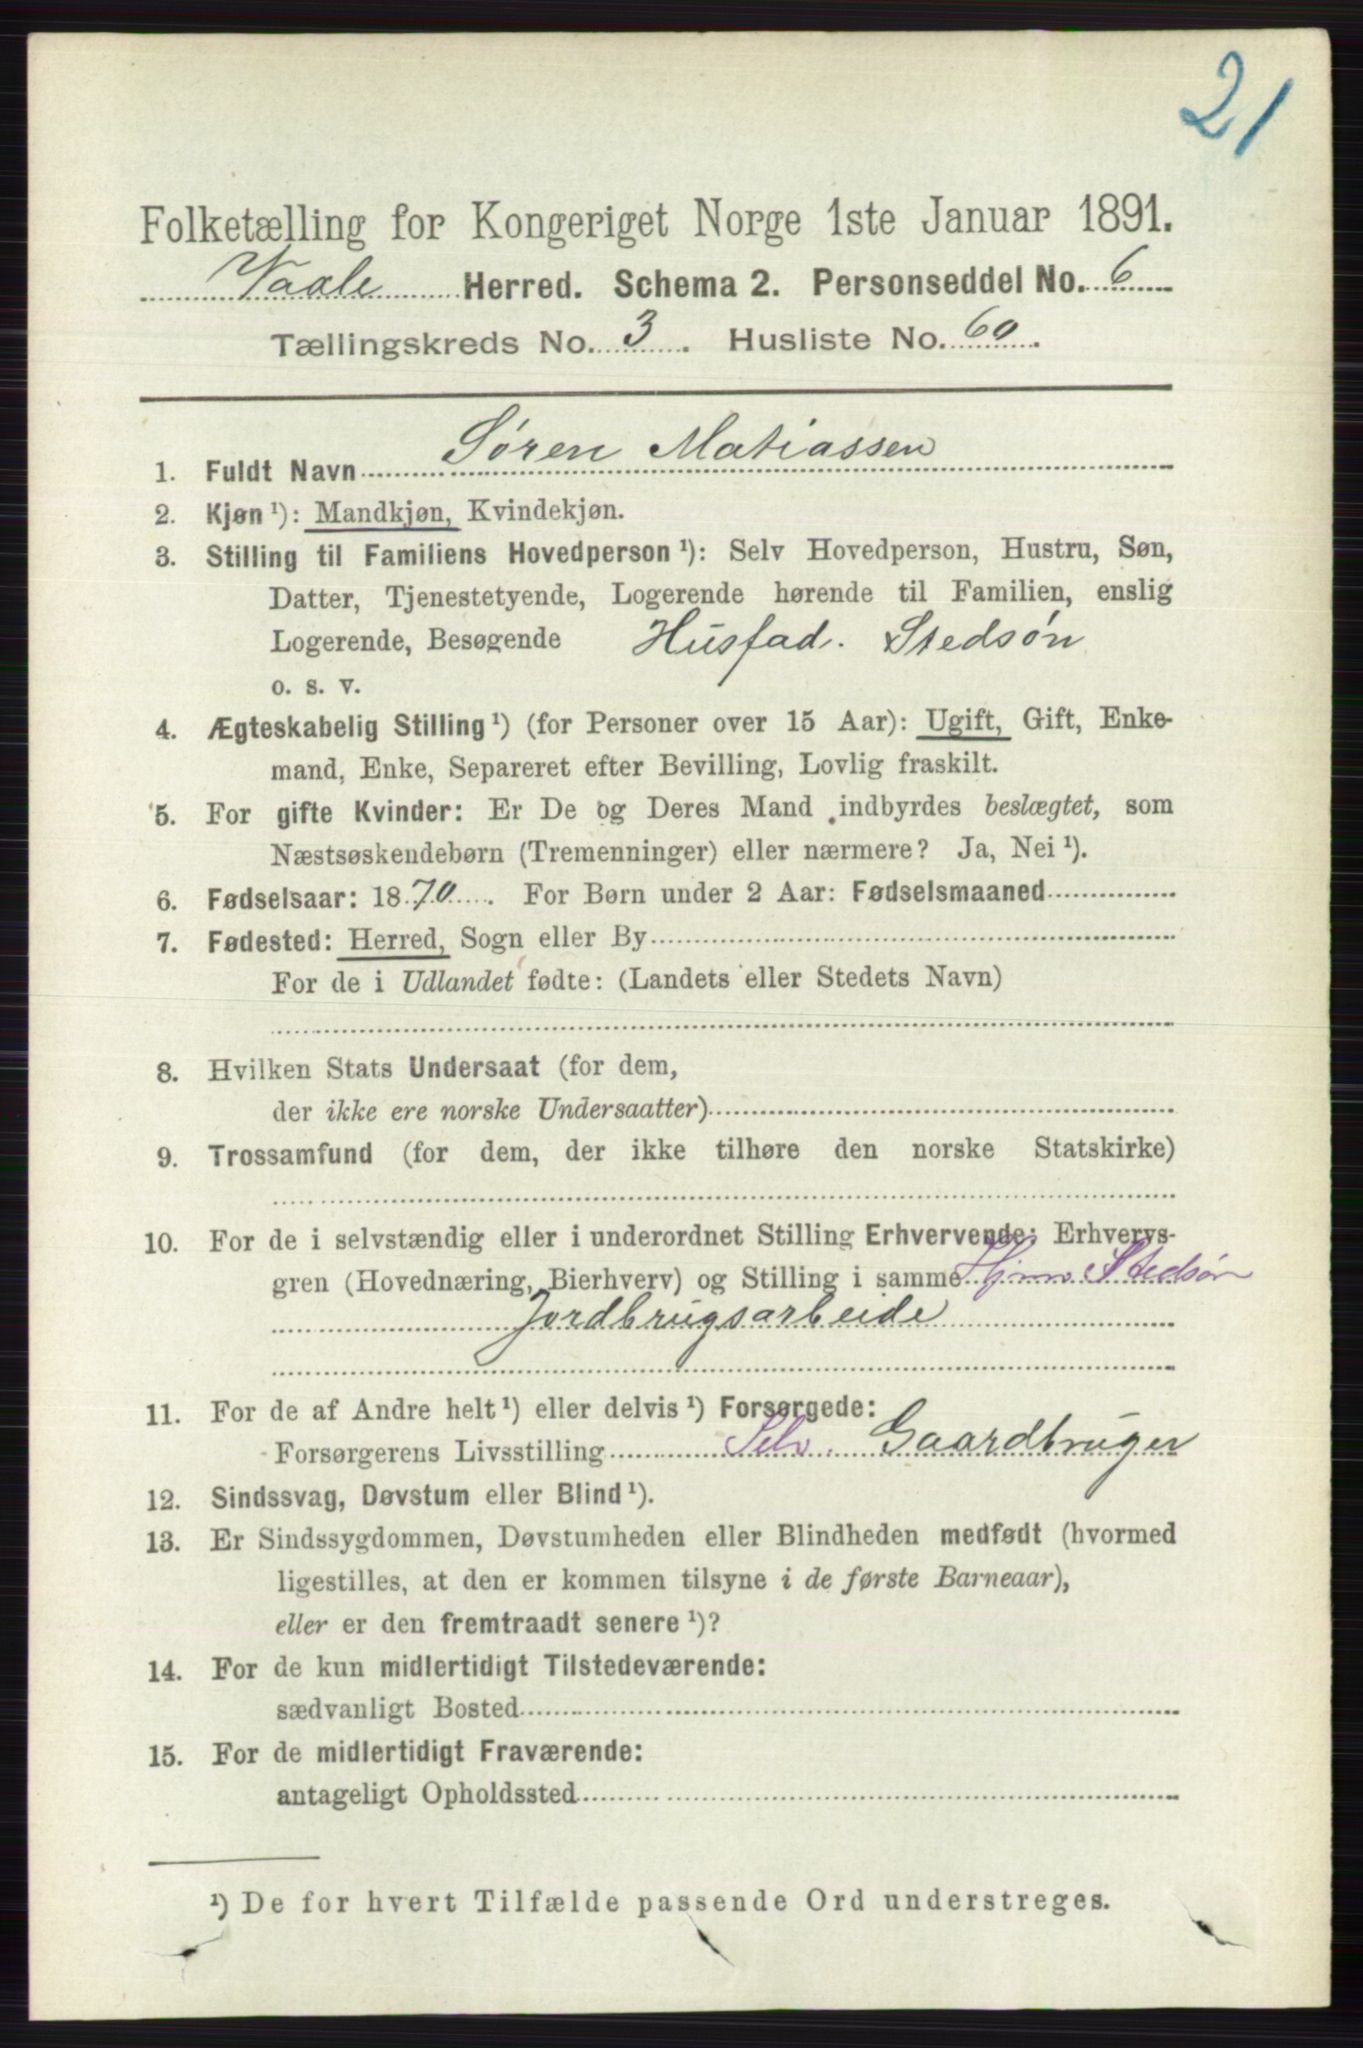 21
Folketælling for Kongeriget Norge 1ste Januar 1891.
Vaale Herred. Schema 2. Personseddel No. 6
Tællingskreds No. 3. Husliste No. 60.
1. Fuldt Navn Søren Matiassen
2. Kjøn ¹): Mandkjøn, Kvindekjøn.
3. Stilling til Familiens Hovedperson ¹): Selv Hovedperson, Hustru, Søn,
Datter, Tjenestetyende, Logerende hørende til Familien, enslig
Logerende, Besøgende Husfad. Stedsøn
o. s. v.
4. Ægteskabelig Stilling ¹) (for Personer over 15 Aar): Ugift, Gift, Enke-
mand, Enke, Separeret efter Bevilling, Lovlig fraskilt.
5. For gifte Kvinder: Er De og Deres Mand indbyrdes beslægtet, som
Næstsøskendebørn (Tremenninger) eller nærmere? Ja, Nei ¹).
6. Fødselsaar: 1870. For Børn under 2 Aar: Fødselsmaaned
7. Fødested: Herred, Sogn eller By
For de i Udlandet fødte: (Landets eller Stedets Navn)
8. Hvilken Stats Undersaat (for dem,
der ikke ere norske Undersaatter)
9. Trossamfund (for dem, der ikke tilhøre den norske Statskirke)
10. For de i selvstændig eller i underordnet Stilling Erhvervende: Erhvervs-
gren (Hovednæring, Bierhverv) og Stilling i samme Stedsøn
Jordbrugsarbeide
11. For de af Andre helt ¹) eller delvis ¹) Forsørgede:
Forsørgerens Livsstilling Selv. Gaardbruger
12. Sindssvag, Døvstum eller Blind ¹).
13. Er Sindssygdommen, Døvstumheden eller Blindheden medfødt (hvormed
ligestilles, at den er kommen tilsyne i de første Barneaar),
eller er den fremtraadt senere ¹)?
14. For de kun midlertidigt Tilstedeværende:
sædvanligt Bosted
15. For de midlertidigt Fraværende:
antageligt Opholdssted
¹) De for hvert Tilfælde passende Ord understreges.